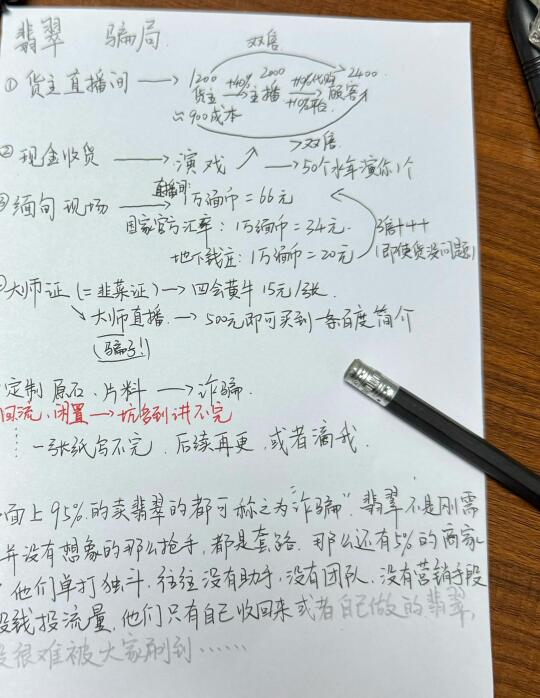 翡翠 骗局.
双簧
① 货主直播间 → 1200 +40% 2000 +10%代购 2400
货主 → 主播 +10%平台 顾客
≈900成本
双簧
② 现金收货 → 演戏 → 50个水军演你1个
直播间: 1万缅币=66元
③ 缅甸现场 → 国家官方汇率: 1万缅币=34元
地下钱庄: 1万缅币=20元
骗++++
(即使货没问题)
大师证(=韭菜证) → 四会黄牛 15元/张.
大师直播. → 500元即可买到一条百度简介
(骗子!)
定制 原石、片料 → 诈骗.
回流、闲置 → 坑多到讲不完
一张纸写不完. 后续再更. 或者滴我.
面上95%的卖翡翠的都可称之为"诈骗". 翡翠不是刚需
并没有想象的那么抢手, 都是套路. 那么还有5%的商家
他们单打独斗. 往往没有助手, 没有团队, 没有营销手段
没钱投流量, 他们只有自己收回来或者自己做的翡翠,
很难被大家刷到……